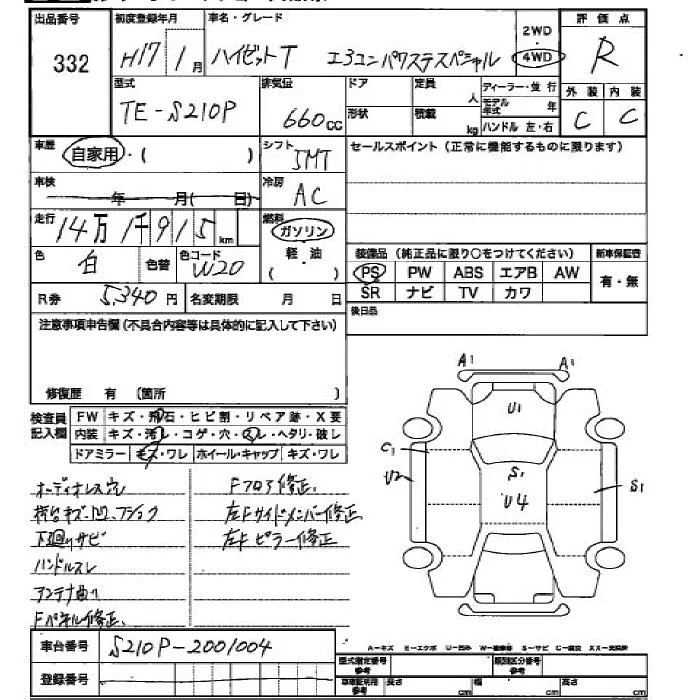 出品番号 初度登録年月 車名・グレード 2WD 評価点
332 H17 1月 ハイゼットT エコユニパワステスペシャル 4WD R
型式 排気量 ドア 定員 人 ディーラー・並行 外装 内装
TE-S210P 660cc 形状 積載 kg モデル年式 年 C C
ハンドル 左・右
車歴 自家用・( ) シフト 5MT セールスポイント(正常に機能するものに限ります)
車検 年 月( 日) 冷房 AC
走行 14万1千915km 燃料 ガソリン
色 白 色替 色コード W20 軽油 装備品(純正品に限り○をつけてください) 新車保証書
( ) PS PW ABS エアB AW 有・無
R券 5,340円 名変期限 月 日 SR ナビ TV カワ
注意事項申告欄(不具合内容等は具体的に記入して下さい) 後日品
修復歴 有 (箇所 )
A1 A1
検査員 FW キズ・飛石・ヒビ割・リペア跡・X要 U1
記入欄 内装 キズ・汚レ・コゲ・穴・スレ・ヘタリ・破レ
ドアミラー キズ・ワレ ホイール・キャップ キズ・ワレ C1
U2 S1 S1
オーディオレス穴 Fフロア修正、 U4
荷台キズ・凹、フショク 左Fサイドメンバー修正
下廻りサビ 左Fピラー修正、
ハンドルスレ
アンテナ曲り
Fパネル修正、
車台番号 S210P-2001004 A-キズ E-エクボ U-凹み W-補修跡 S-サビ C-腐食 XX-交換済
登録番号 型式指定番号 参考 類別区分番号 参考
車庫証明用 参考 長さ cm 幅 cm 高さ cm